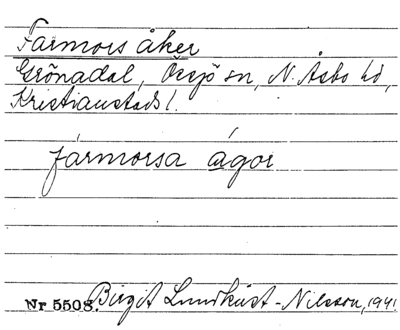 Farmors åker
Grönadal, Örsjö sn, N. Åsbo hd,
Kristianstads l.
fármorsa ágor
Nr 5508. Birgit Lundkvist-Nilsson, 1941